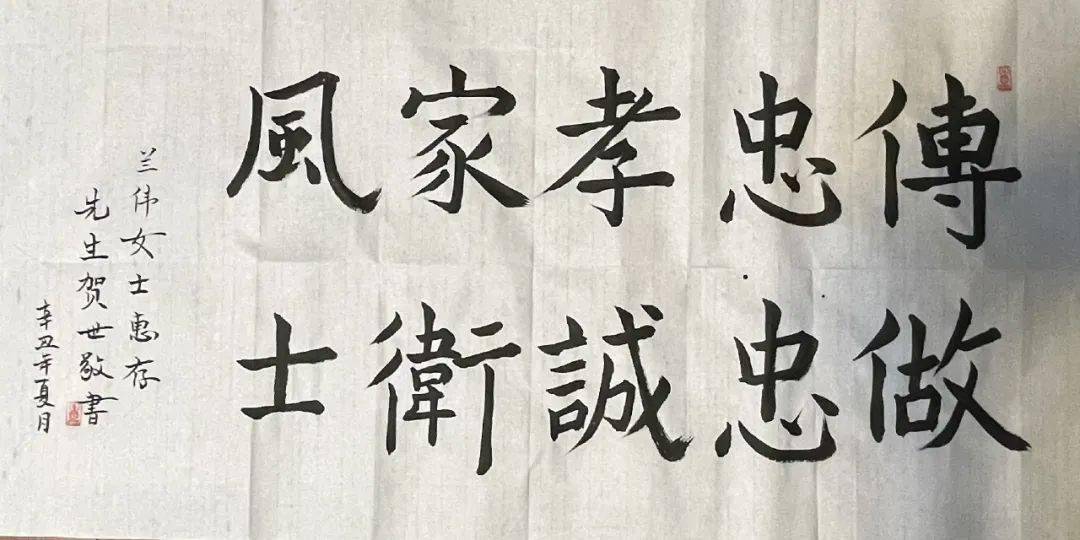 傳忠孝家風
做忠誠衛士
兰伟女士惠存
先生贺世敬書
辛丑年夏月